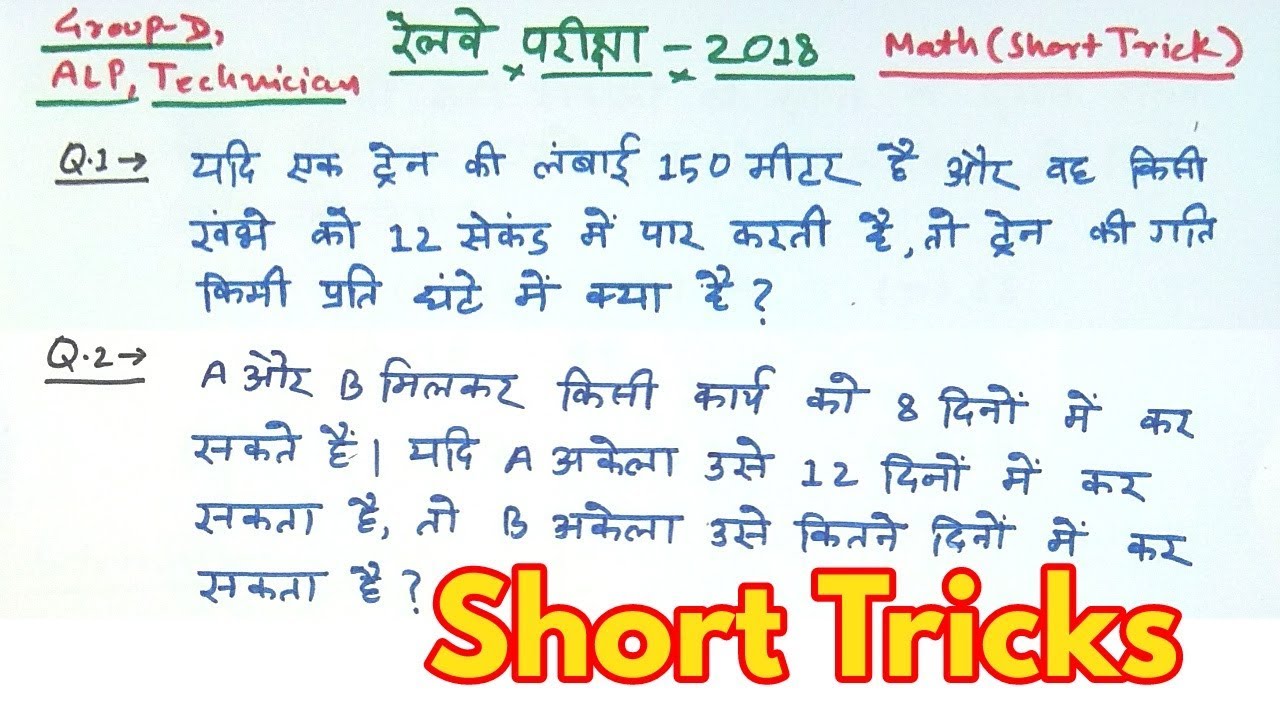 Group-D,
ALP, Technician
रेलवे परीक्षा - 2018
Math (Short Trick)
Q.1→ यदि एक ट्रेन की लंबाई 150 मीटर है और वह किसी
खंभे को 12 सेकंड में पार करती है, तो ट्रेन की गति
किमी प्रति घंटे में क्या है?
Q.2→ A और B मिलकर किसी कार्य को 8 दिनों में कर
सकते हैं। यदि A अकेला उसे 12 दिनों में कर
सकता है, तो B अकेला उसे कितने दिनों में कर
सकता है?
Short Tricks